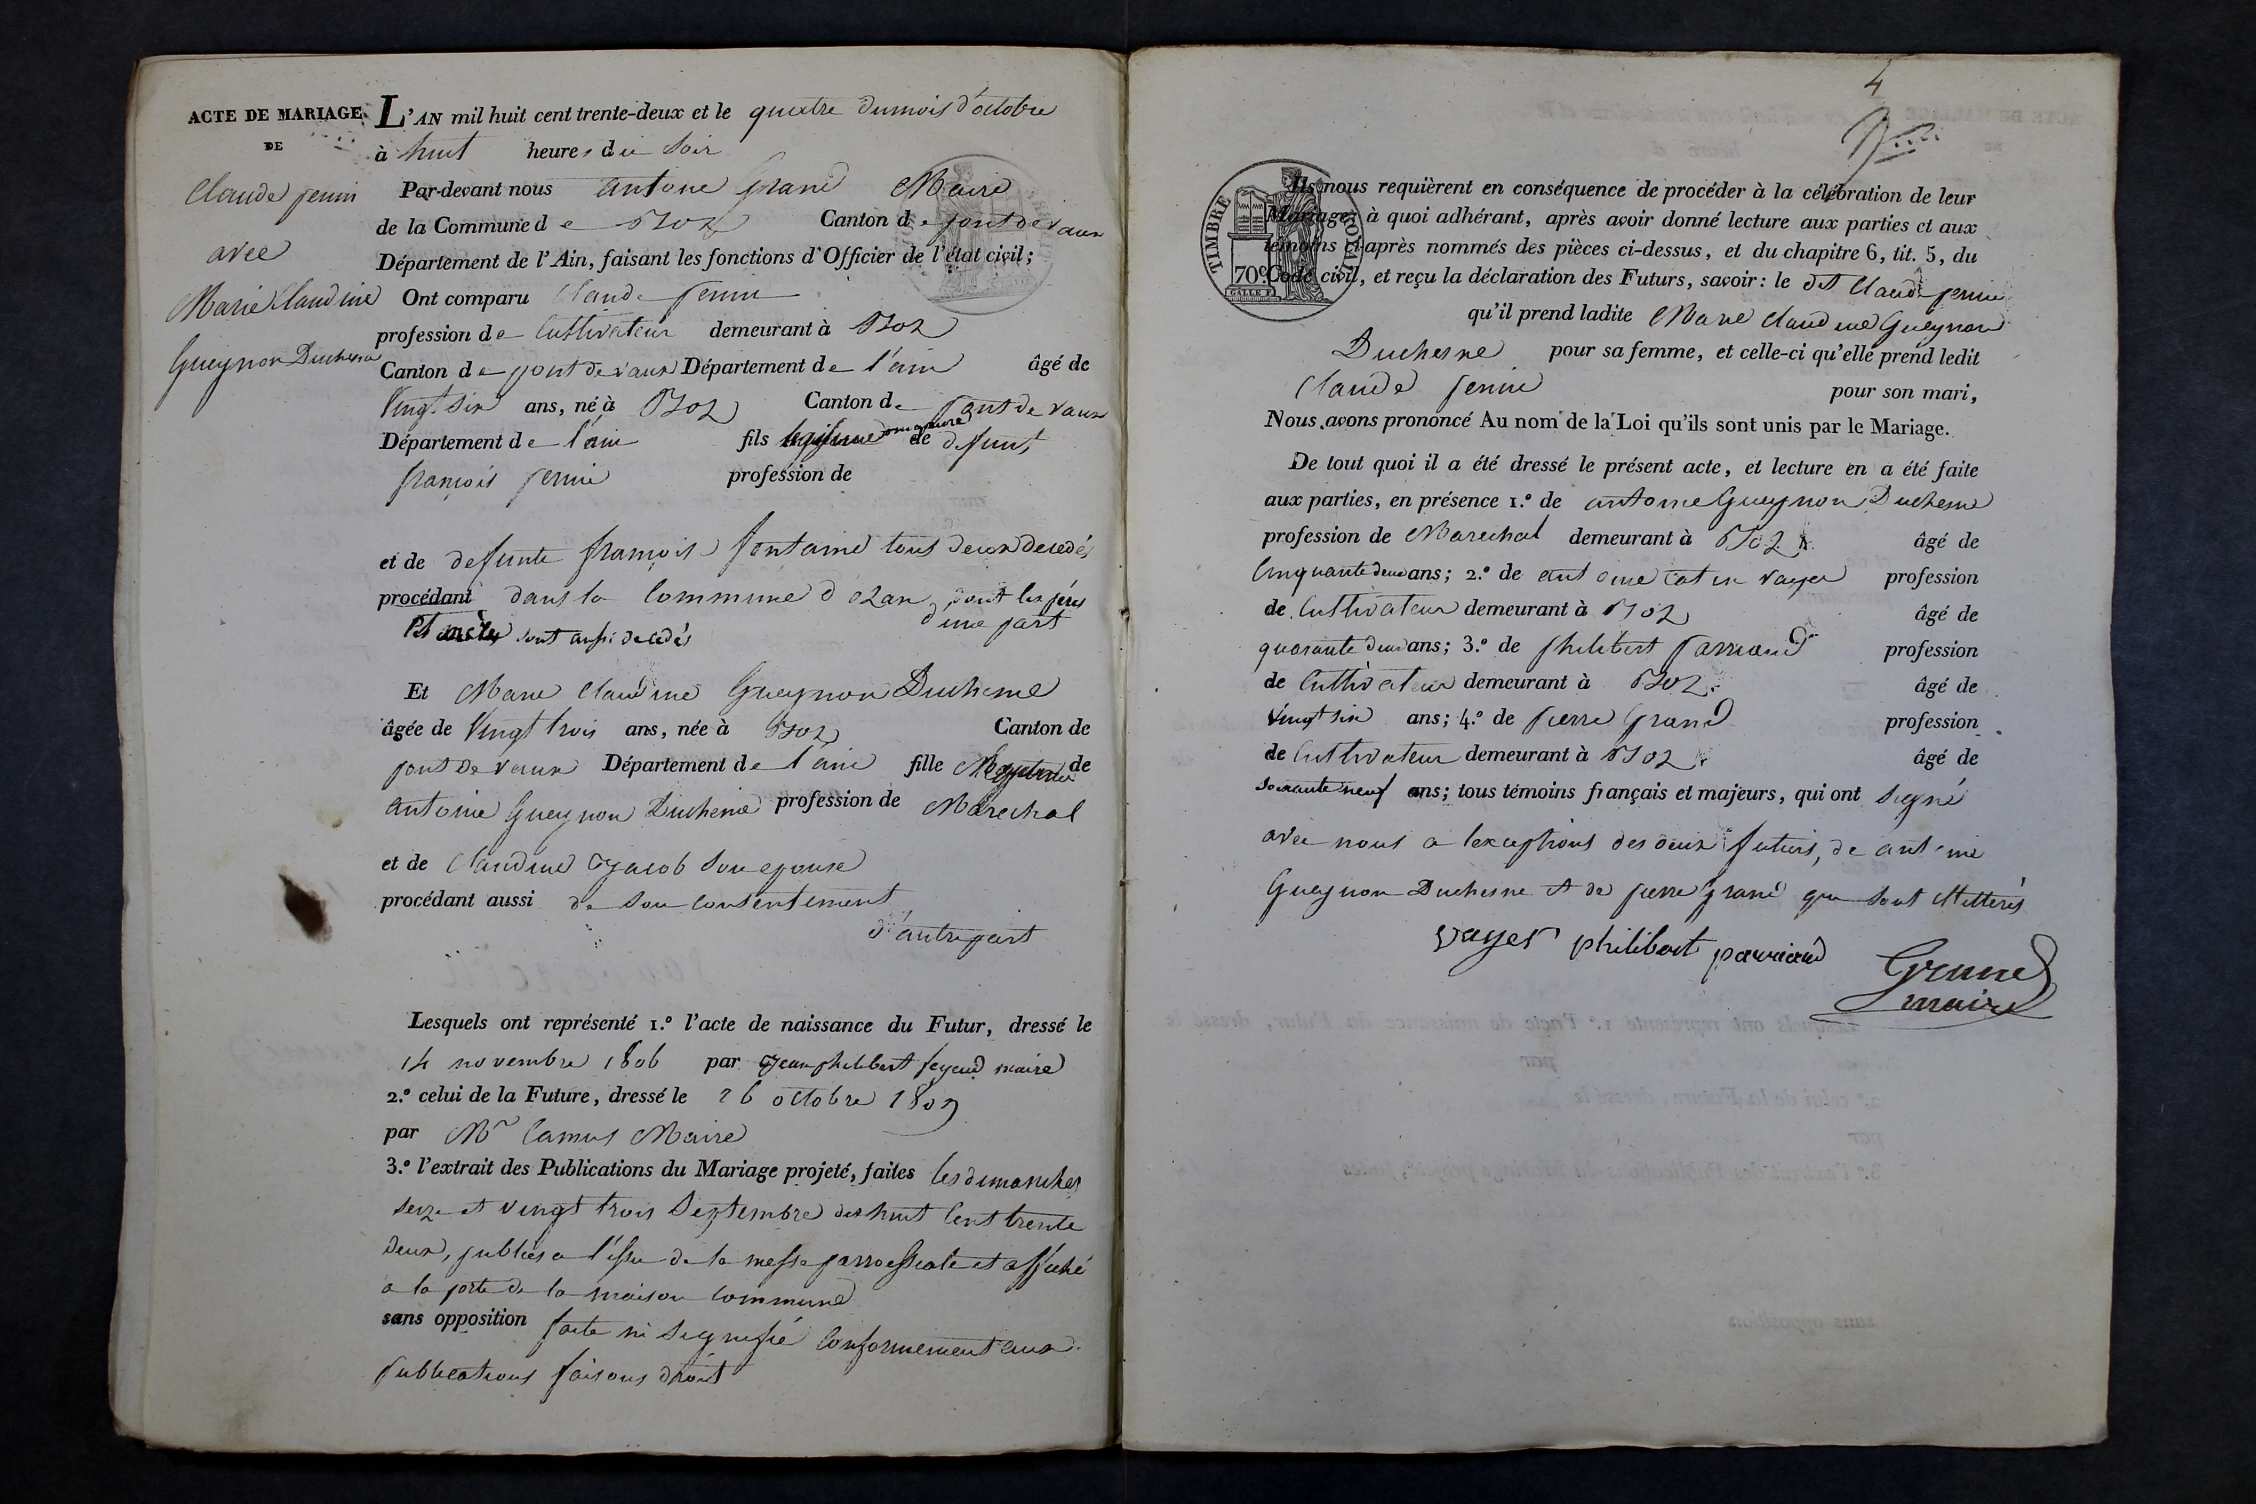 ACTE DE MARIAGE
DE
Claude perrin
avec
Marie Claudine
Gueynon Duchesne
L'AN mil huit cent trente-deux et le quatre du mois d'octobre
à huit heures du soir
Par-devant nous antoine grand Maire
de la Commune de Boz Canton de pont de vaux
Département de l'Ain, faisant les fonctions d'Officier de l'état civil;
Ont comparu Claude perrin
profession de Cultivateur demeurant à Boz
Canton de pont de vaux Département de l'ain âgé de
Vingt six ans, né à Boz Canton de pont de vaux
Département de l'ain fils majeure de defunt
françois perrin profession de
et de defunte françois fontaine tous deux decedés
procédant dans la Commune d'ozan, dont les pères
et mères sont aussi decedés d'une part
Et Marie Claudine Gueynon Duchesne
âgée de Vingt trois ans, née à Boz Canton de
pont de vaux Département de l'ain fille de
antoine Gueynon Duchesne profession de Marechal
et de Claudine Jacob son epouse
procédant aussi de son consentement
d'autre part
Lesquels ont représenté 1.º l'acte de naissance du Futur, dressé le
14 novembre 1806 par Jean philibert feyeux maire
2.º celui de la Future, dressé le 26 octobre 1809
par Mr Camus Maire
3.º l'extrait des Publications du Mariage projeté, faites les dimanches
seize et vingt trois Septembre dix huit Cent trente
deux, publiés a l'issu de la messe parroissiale et affiché
a la porte de la maison commune
sans opposition faite ni signifié Conformement aux
publications faisons droit
4
TIMBRE ROYAL
70c
Ils nous requièrent en conséquence de procéder à la célébration de leur
Mariage; à quoi adhérant, après avoir donné lecture aux parties et aux
témoins ci-après nommés des pièces ci-dessus, et du chapitre 6, tit. 5, du
Code civil, et reçu la déclaration des Futurs, savoir: le dit Claude perrin
qu'il prend ladite Marie Claudine Gueynon
Duchesne pour sa femme, et celle-ci qu'elle prend ledit
Claude perrin pour son mari,
Nous avons prononcé Au nom de la Loi qu'ils sont unis par le Mariage.
De tout quoi il a été dressé le présent acte, et lecture en a été faite
aux parties, en présence 1.º de antoine Gueynon Duchesne
profession de Marechal demeurant à Boz âgé de
Cinquante deux ans; 2.º de antoine catin vayer profession
de Cultivateur demeurant à Boz âgé de
quarante deux ans; 3.º de philibert parriaud profession
de Cultivateur demeurant à Boz âgé de
Vingt six ans; 4.º de pierre Grand profession
de Cultivateur demeurant à Boz âgé de
soixante neuf ans; tous témoins français et majeurs, qui ont signé
avec nous a l'exceptions des deux futurs, de antoine
Gueynon Duchesne et de pierre grand qui sont illitterés
vayer philibert parriaud
Grand
maire